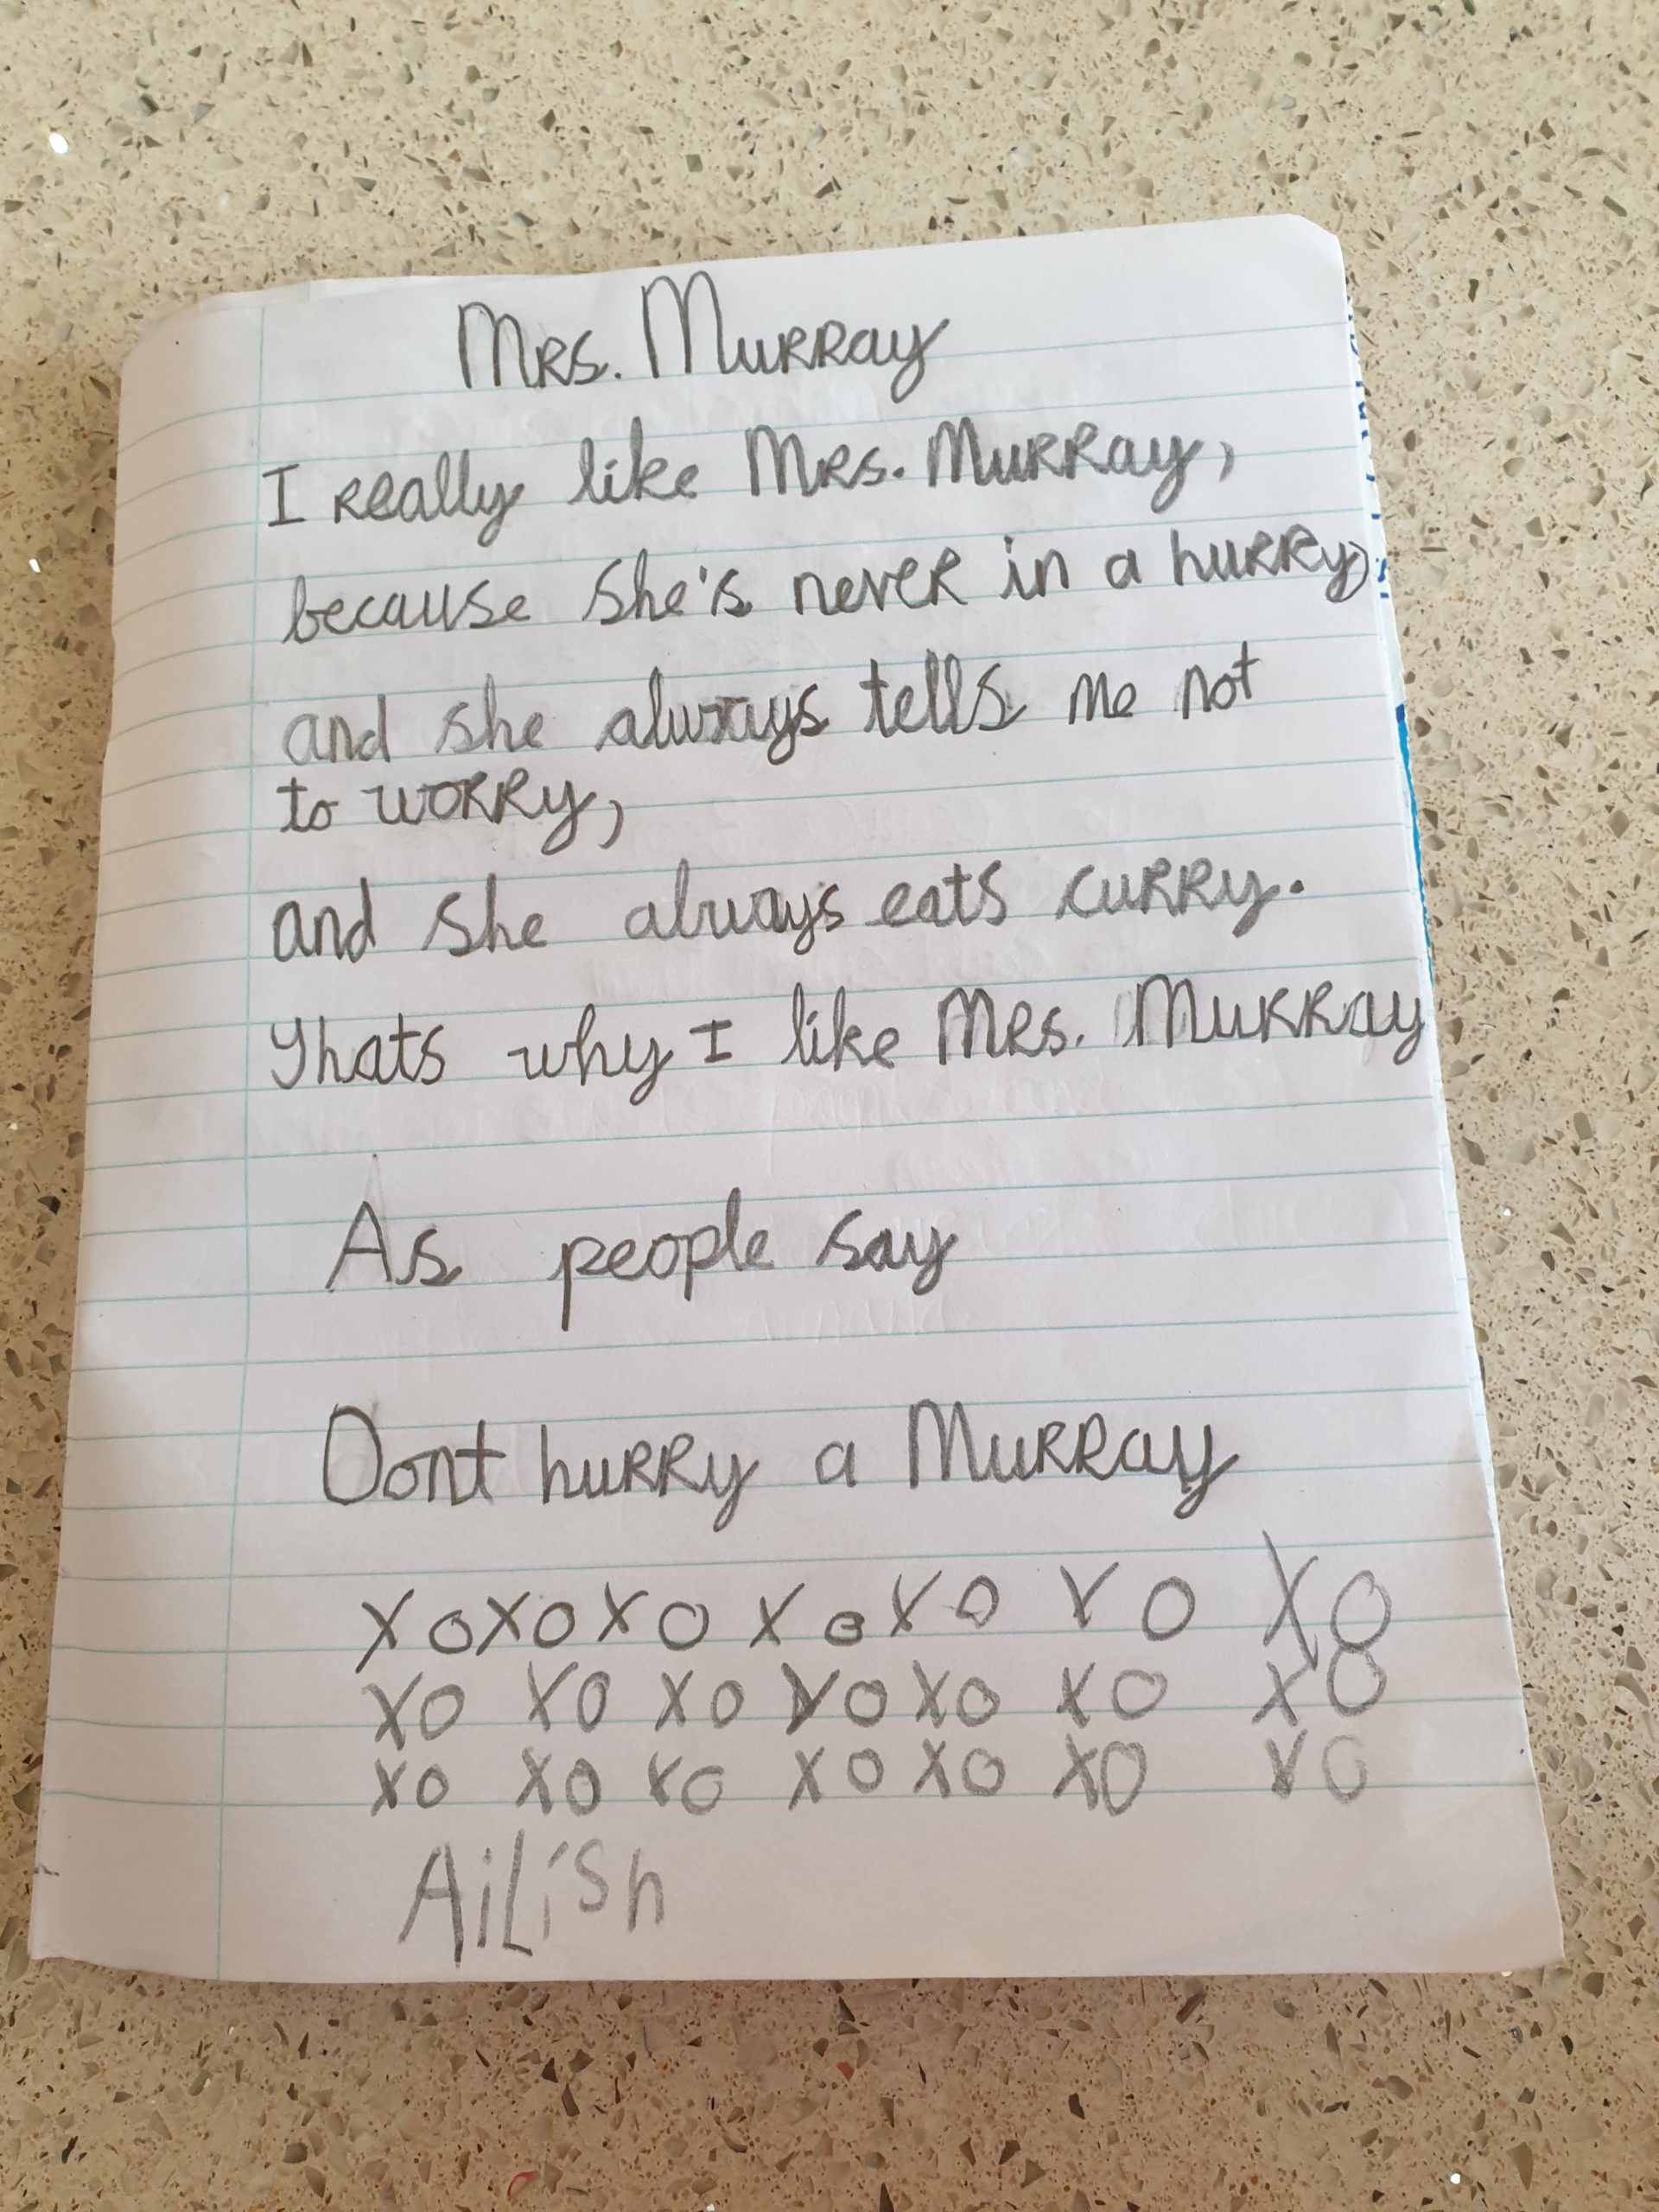 Mrs. Murray
I really like Mrs. Murray,
because she's never in a hurry,
and she always tells me not
to worry,
and she always eats curry.
Thats why I like Mrs. Murray
As people say
Dont hurry a Murray
XOXOXO XO XO XO XO
XO XO XO XO XO XO XO
XO XO XO XO XO XO XO
Ailish